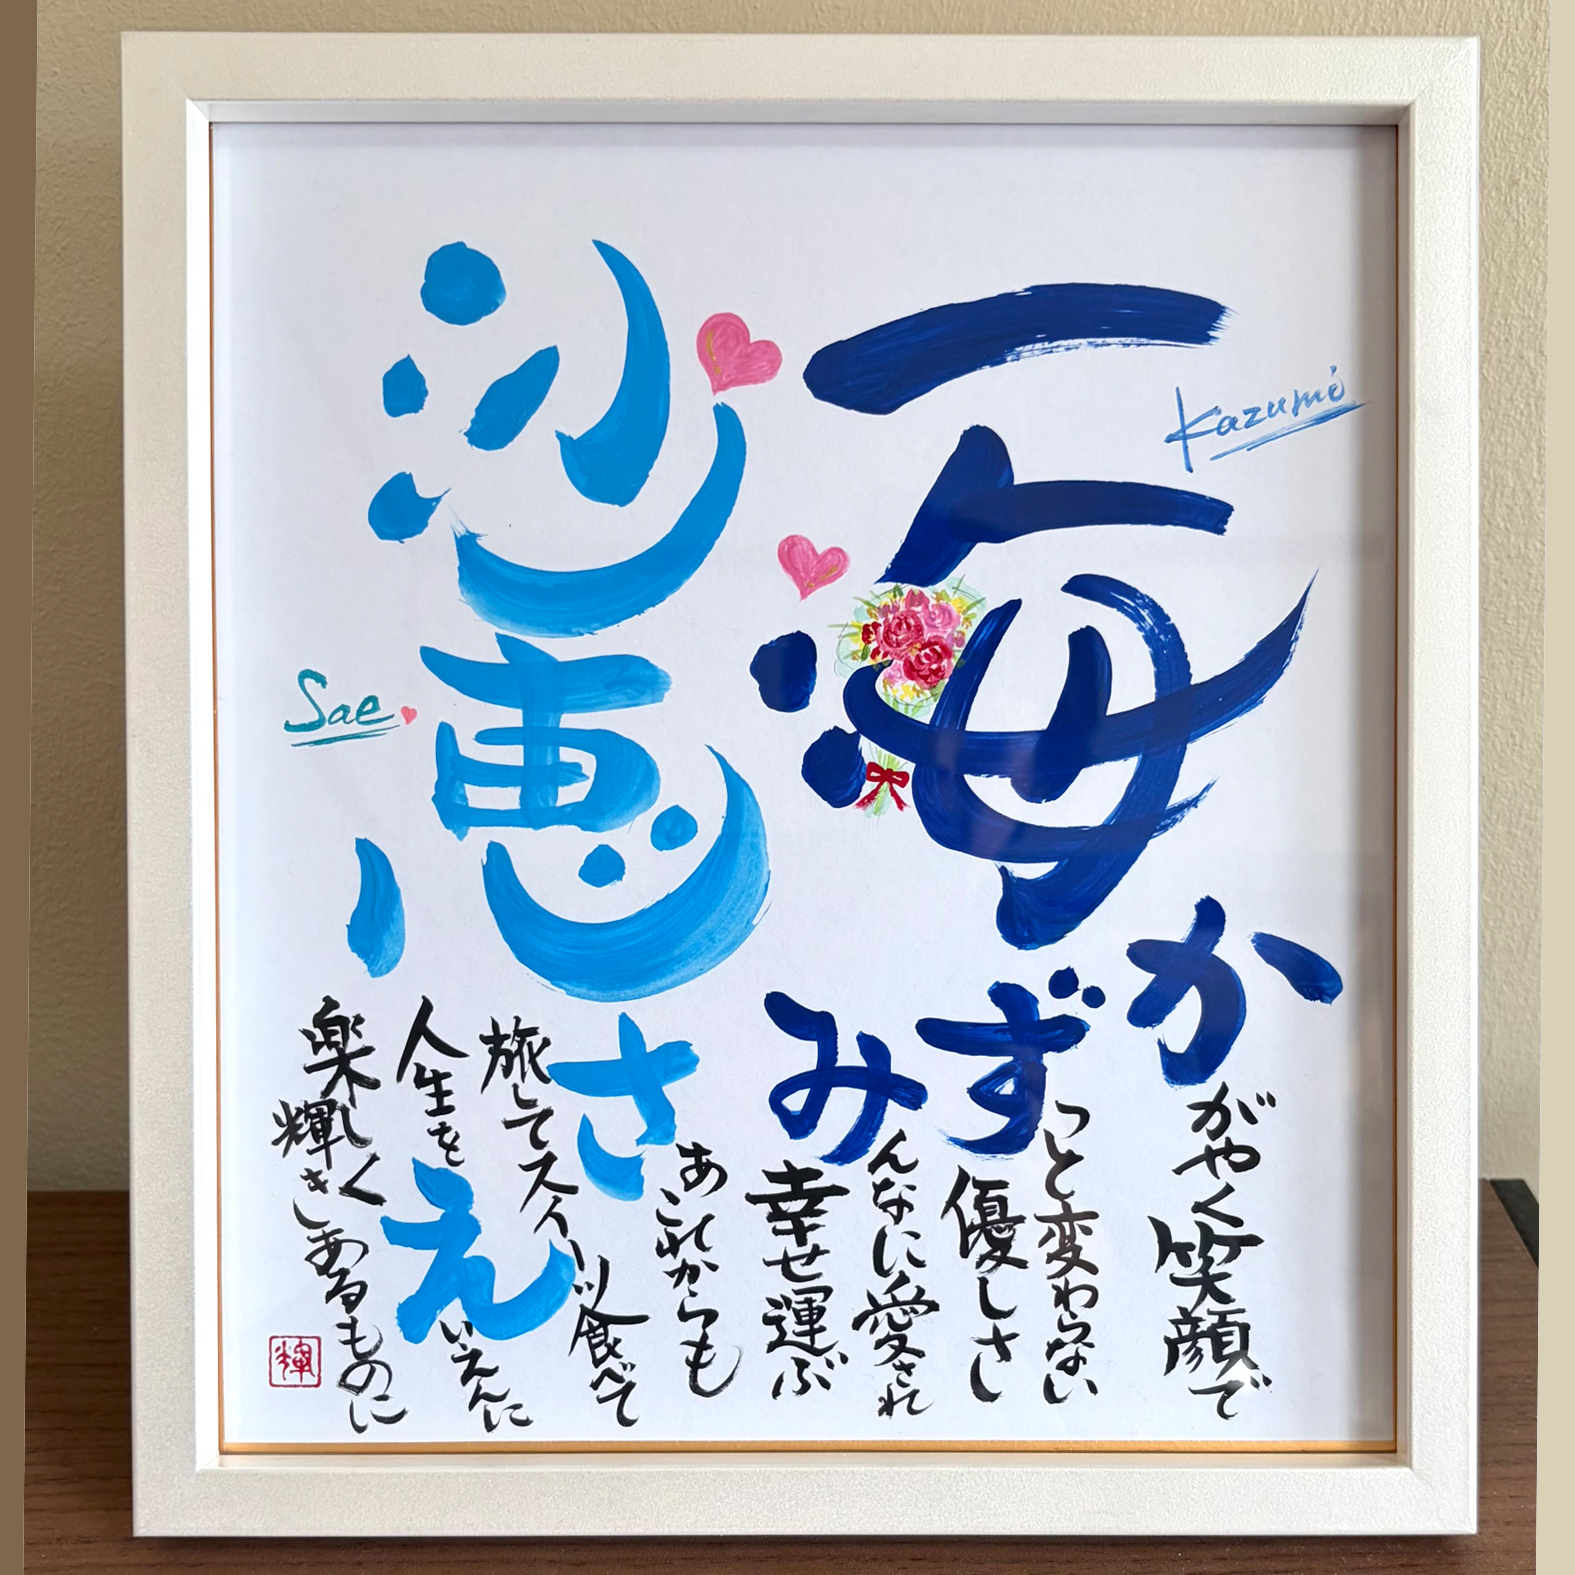 一海
Kazumi
沙恵
Sae
かがやく笑顔で
ずっと変わらない
優しさと
みんなに愛され
幸せ運ぶ
さあこれからも
旅してスイーツ食べて
えいえんに
人生を
楽しく
輝きあるものに
輝